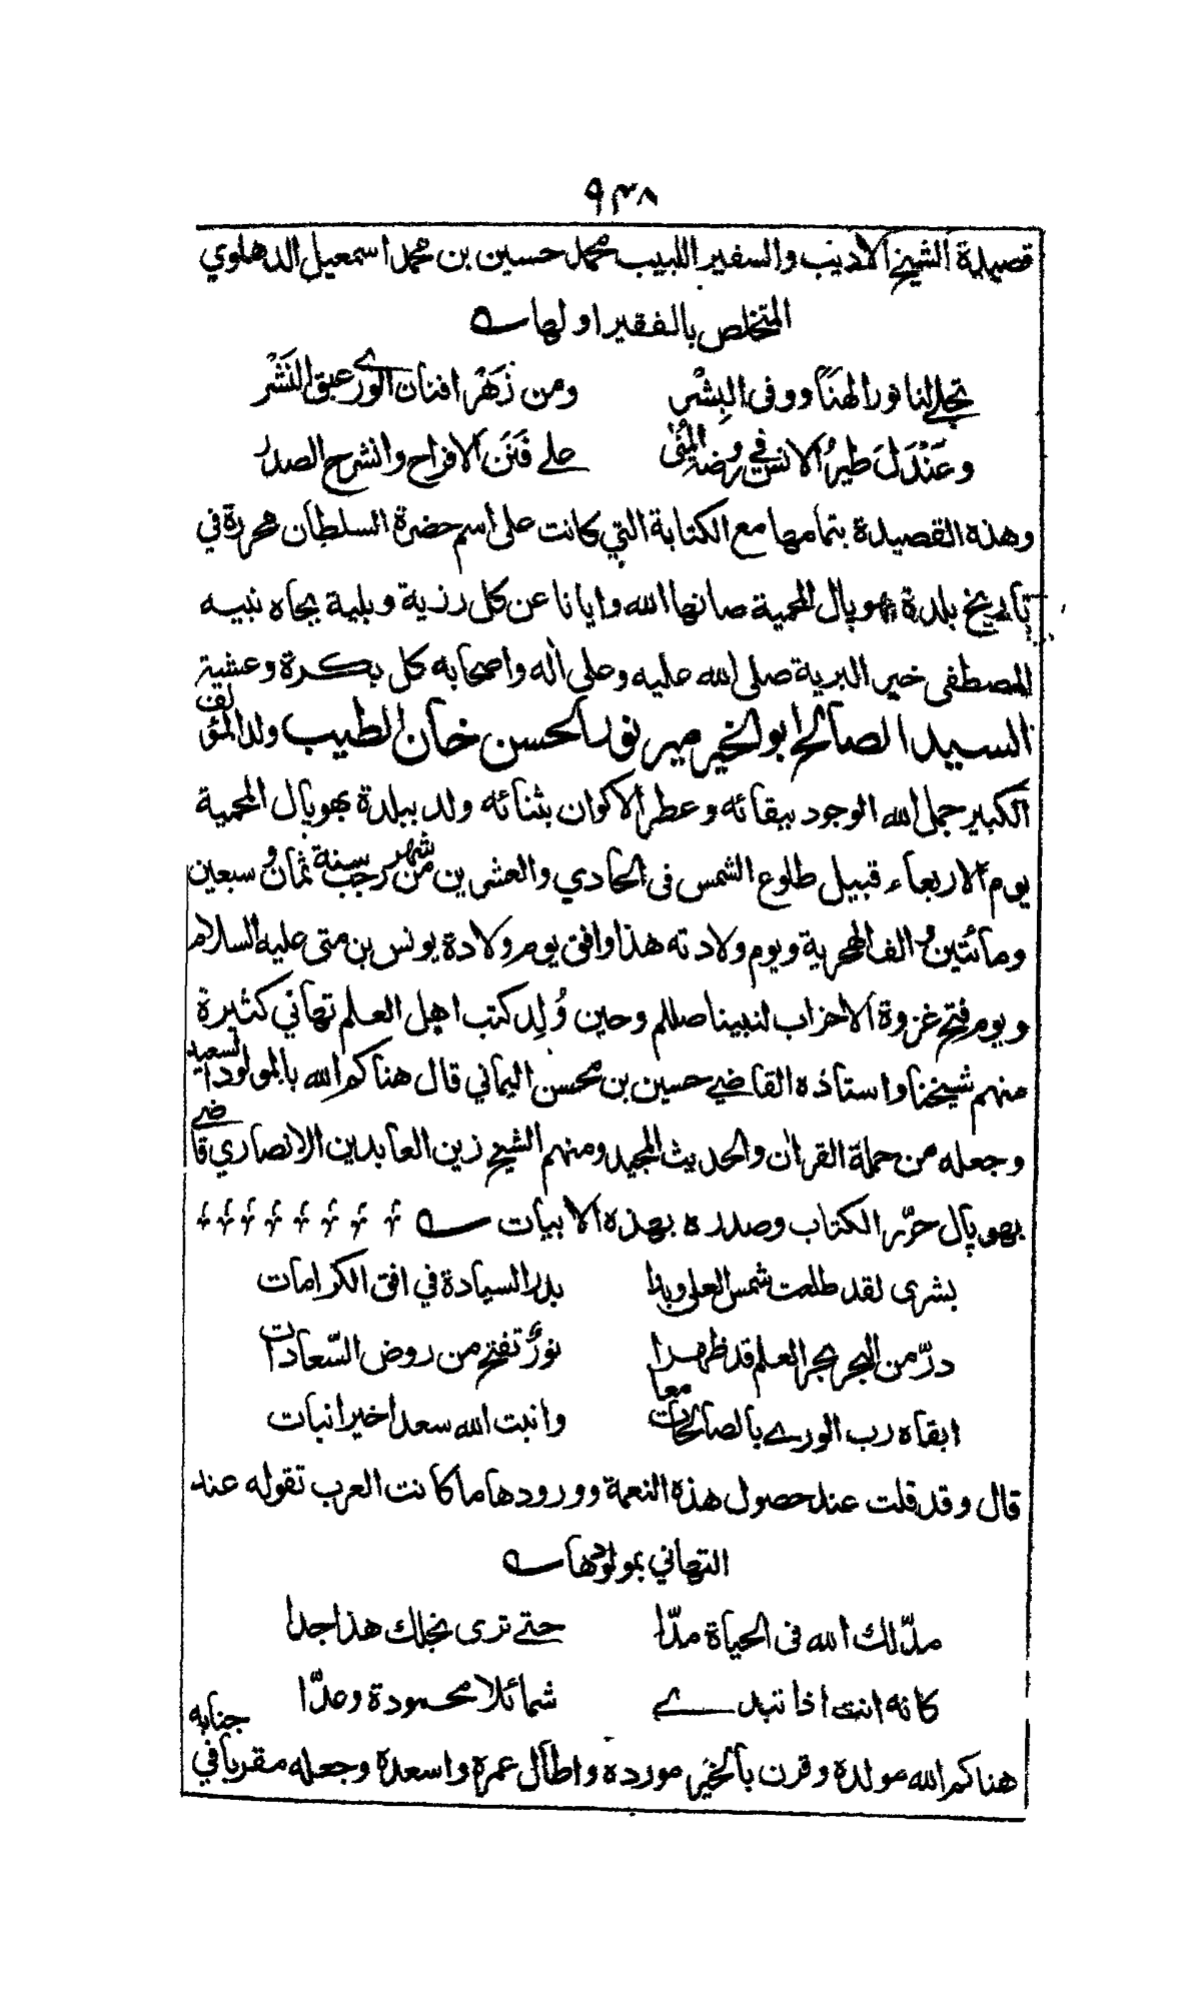 ٩٣٨
قصيدة الشيخ الاديب والسفير اللبيب محمد حسين بن محمد اسمعيل الدهلوي
المتخلص بالفقير اولها
تجلے لنا نور الهَنَا ووفى البِشْر ومن زَهْر افنان الورے عبق النَشْر
وعَنْدَلَ طيرُ الانس في روضة المُنٰى علے فَنَن الافراح وانشرح الصدرُ
وهذه القصيدة بتمامها مع الكتابة التي كانت على اسم حضرة السلطان محررة في
تاريخ بلدة بهوپال المحمية صانها الله وايانا عن كل رزية وبلية بجاه نبيه
المصطفى خير البرية صلى الله عليه وعلى اله واصحابه كل بكرة وعشية
السيد الصالح ابو الخير مير نور الحسن خان الطيب ولد المؤلف
الكبير جمل الله الوجود ببقائه وعطر الاكوان بثنائه ولد ببلدة بهوپال المحمية
يوم الاربعاء قبيل طلوع الشمس فى الحادي والعشرين من شهر رجب سنة ثمان و سبعين
ومائتين و الف الهجرية ويوم ولادته هذا وافق يوم ولادة يونس بن متى عليه السلام
ويوم فتح غزوة الاحزاب لنبينا صللم وحين وُلِد كتب اهل العلم تهاني كثيرة
منهم شيخنا واستاذه القاضي حسين بن محسن اليماني قال هناكم الله بالمولود السعيد
وجعله من حملة القران والحديث المجيد ومنهم الشيخ زين العابدين الانصاري قاضے
بهوپال حرّر الكتاب وصدره بهذه الابيات
بشرى لقد طلعت شمس العلى وبدا بدر السيادة في افق الكرامات
درّ من البحر بحر العلم قد ظهرا نورٌ تفتح من روض السّعادات
ابقاه رب الورے بالصالحات معا وانبت الله سعدا خير انبات
قال وقد قلت عند حصول هذه النعمة وورودها ما كانت العرب تقوله عند
التهاني بمولودها
مدّ لك الله فى الحياة مدّا حتے ترى نجلك هذا جدا
كانه انت اذا تبدے شمائلا محمودة وعدّا
هناكم الله مولده وقرن بالخير مورده واطال عمره واسعده وجعله مقربا في جنابه